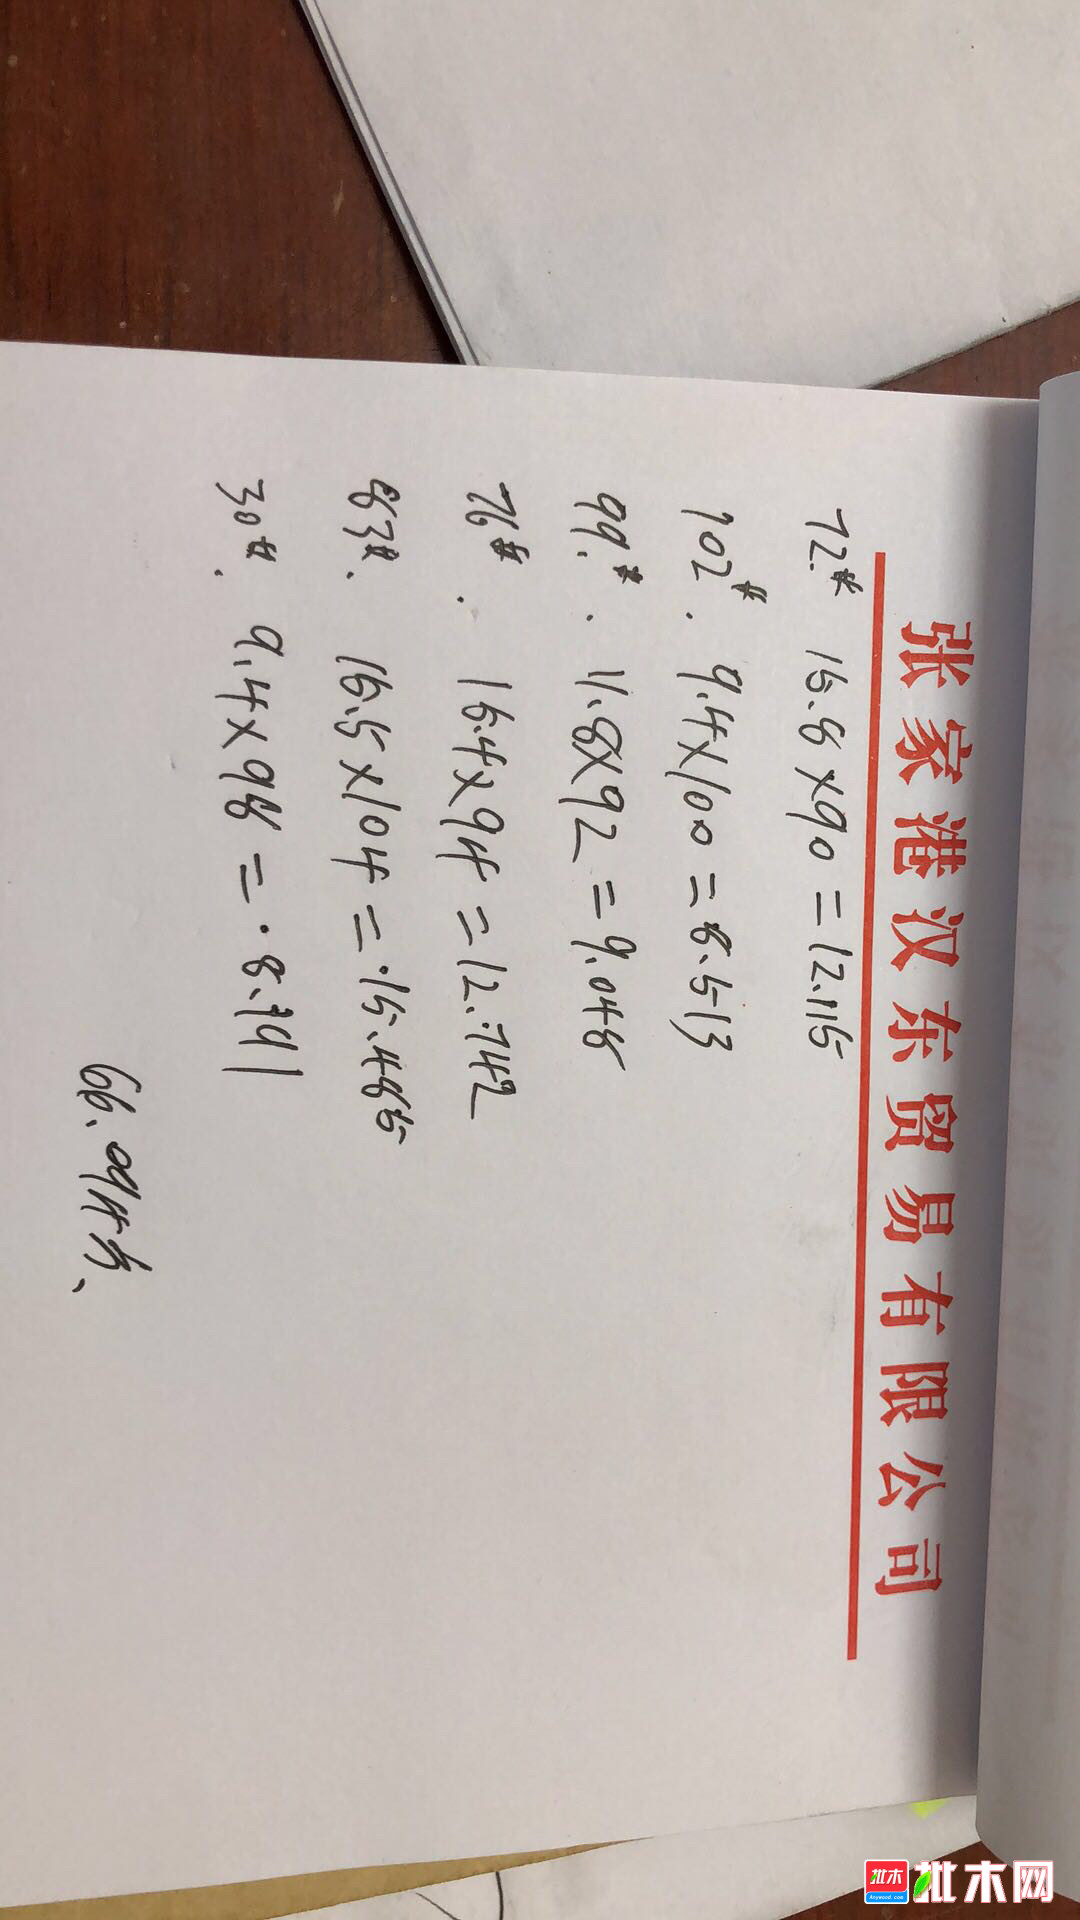 张家港汉东贸易有限公司
72.# 15.8×90=12.115
102#. 9.4×100=8.513
99.#. 11.8×92=9.048
76#. 16.4×94=12.742
83#. 16.5×104=15.485
30#. 9.4×98=8.191
66.094方、
批木
Anywood.com
批木网